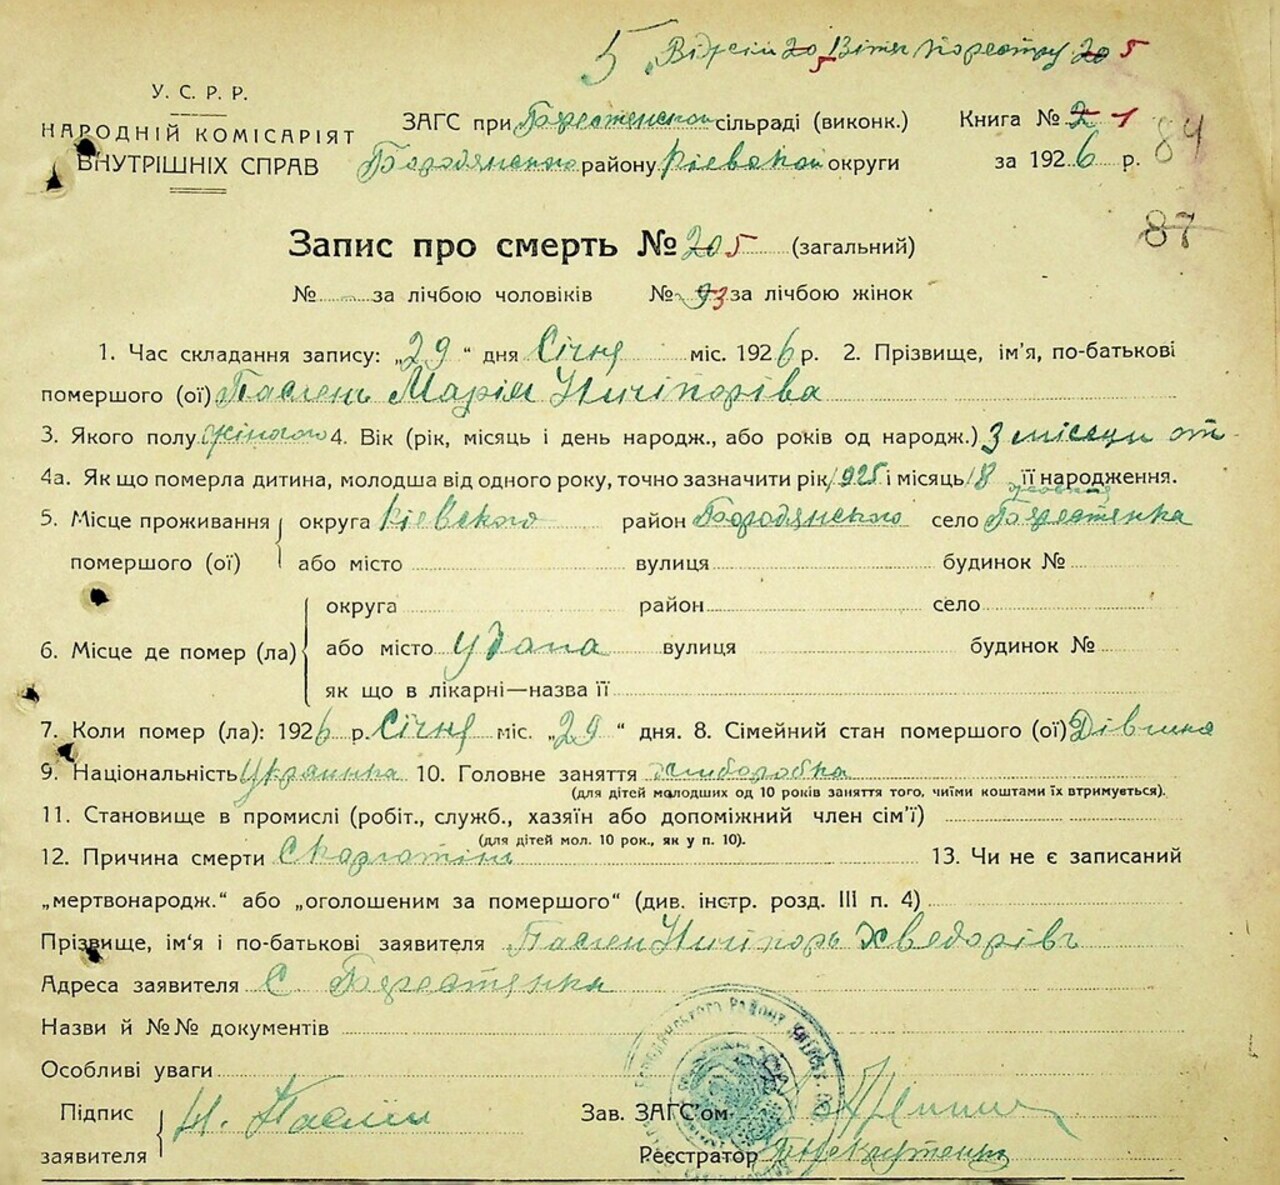 5 20 5 20 5
У. С. Р. Р.
НАРОДНІЙ КОМІСАРІЯТ
ВНУТРІШНІХ СПРАВ
ЗАГС при сільраді (виконк.) Книга № 2 1 84
Бородянського району Кіевской округи за 1926 р.
87
Запис про смерть № 20 5 (загальний)
№ за лічбою чоловіків № 3 за лічбою жінок
1. Час складання запису: „29“ дня Січня міс. 1926 р. 2. Прізвище, ім'я, по-батькові
помершого (ої) Паслень Марія Ничіпоріва
3. Якого полу жіночого 4. Вік (рік, місяць і день народж., або років од народж.) 3 місяци
4а. Як що померла дитина, молодша від одного року, точно зазначити рік 1925 і місяць 18 її народження.
5. Місце проживання помершого (ої) округа Кіевского район Бородянского село
або місто вулиця будинок №
6. Місце де помер (ла) округа район село
або місто удома вулиця будинок №
як що в лікарні—назва її
7. Коли помер (ла): 1926 р. Січня міс. „29“ дня. 8. Сімейний стан помершого (ої) Дівчина
9. Національність Украінка 10. Головне заняття
(для дітей молодших од 10 років заняття того, чиїми коштами їх втримується).
11. Становище в промислі (робіт., служб., хазяїн або допоміжний член сім'ї)
(для дітей мол. 10 рок., як у п. 10).
12. Причина смерти 13. Чи не є записаний
„мертвонародж.“ або „оголошеним за помершого“ (див. інстр. розд. III п. 4)
Прізвище, ім'я і по-батькові заявителя Паслен Ничіпорь Хведорівь
Адреса заявителя С.
Назви й №№ документів
Особливі уваги
Підпис заявителя Н. Зав. ЗАГС'ом
Реєстратор